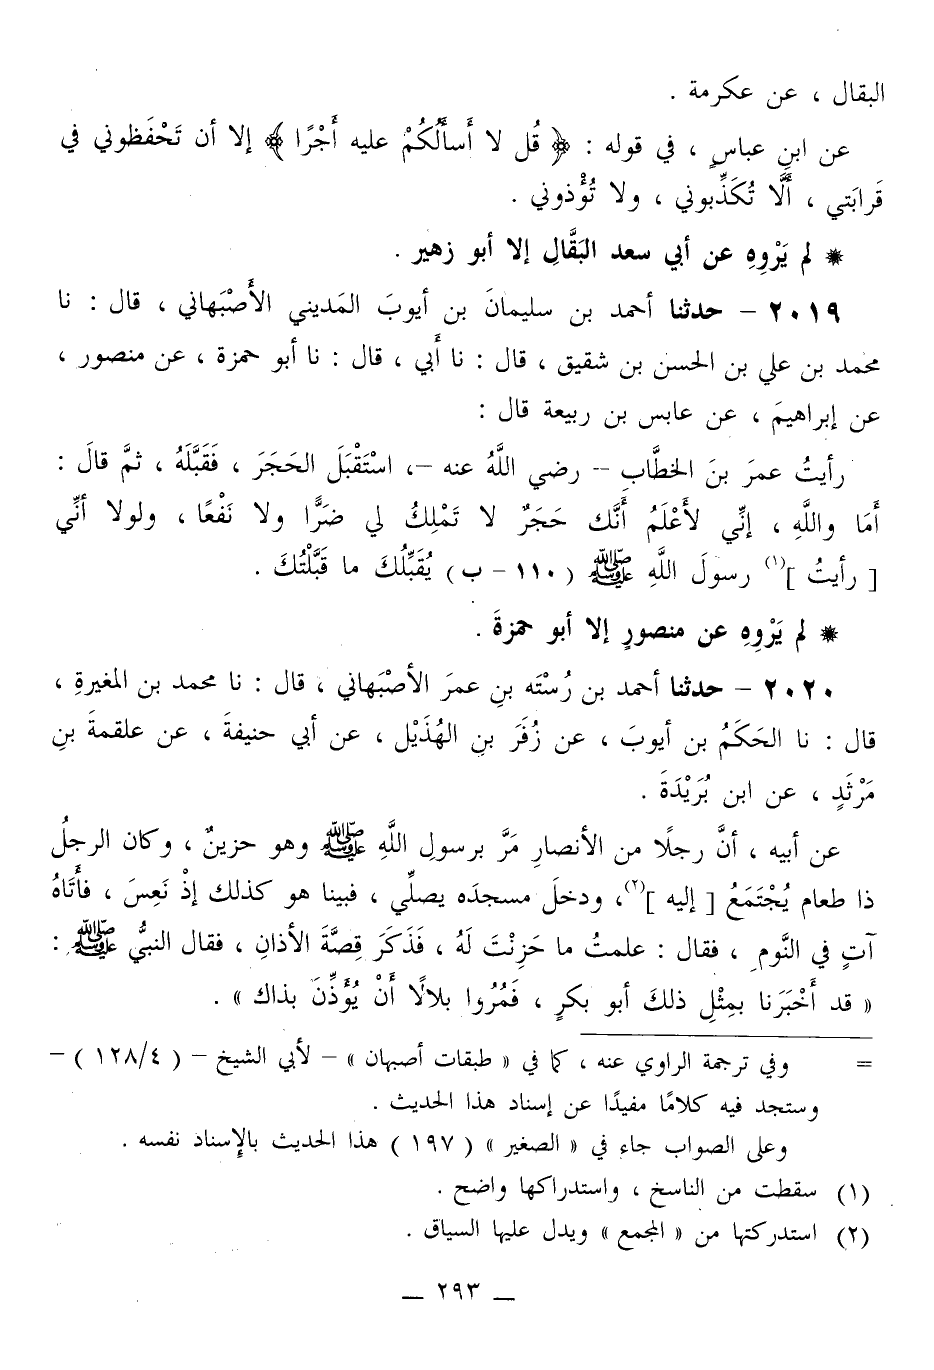 البقال ، عن عكرمة .
عن ابنِ عباسٍ ، في قوله : ﴿ قُل لا أَسأَلُكُمْ عليه أَجْرًا ﴾ إلا أن تَحْفَظوني في
قَرابَتي ، أَلَّا تُكَذِّبوني ، ولا تُؤْذوني .
* لم يَرْوِهِ عن أبي سعد البَقَّالِ إلا أبو زهير .
٢٠١٩ - حدثنا أحمد بن سليمانَ بن أيوبَ المَديني الأَصْبَهاني ، قال : نا
محمد بن علي بن الحسن بن شقيق ، قال : نا أَبي ، قال : نا أبو حمزة ، عن منصور ،
عن إبراهيمَ ، عن عابس بن ربيعة قال :
رأيتُ عمرَ بنَ الخطَّابِ -- رضي اللَّهُ عنه –، اسْتَقْبَلَ الحَجَرَ ، فَقَبَّلَهُ ، ثمَّ قالَ :
أَمَا واللَّهِ ، إنِّي لأَعْلَمُ أَنَّك حَجَرٌ لا تَمْلِكُ لي ضَرًّا ولا نَفْعًا ، ولولا أنِّي
[ رأيتُ ](١) رسولَ اللَّهِ ﷺ ( ١١٠ - ب ) يُقَبِّلُكَ ما قَبَّلْتُكَ .
* لم يَرْوِهِ عن منصورٍ إلا أبو حمزةَ .
٢٠٢٠ - حدثنا أحمد بن رُسْتَه بنِ عمرَ الأصْبَهاني ، قال : نا محمد بن المغيرةِ ،
قال : نا الحَكَمُ بن أيوبَ ، عن زُفَرَ بنِ الهُذَيْل ، عن أبي حنيفةَ ، عن علقمةَ بنِ
مَرْثَدٍ ، عن ابن بُرَيْدَةَ .
عن أبيه ، أنَّ رجلًا من الأنصارِ مَرَّ برسولِ اللَّهِ ﷺ وهو حزينٌ ، وكان الرجلُ
ذا طعام يُجْتَمَعُ [ إليه ](٢)، ودخلَ مسجدَه يصلِّي ، فبينا هو كذلك إذْ نَعِسَ ، فأَتَاهُ
آتٍ في النَّومِ ، فقال : علمتُ ما حَزِنْتَ لَهُ ، فَذَكَرَ قِصَّةَ الأذانِ ، فقال النبيُّ ﷺ :
« قد أَخْبَرَنا بمِثْلِ ذلكَ أبو بكرٍ ، فَمُرُوا بلالًا أَنْ يُؤَذِّنَ بذاك » .
= وفي ترجمة الراوي عنه ، كما في « طبقات أصبهان » - لأبي الشيخ - ( ١٢٨/٤ ) -
وستجد فيه كلامًا مفيدًا عن إسناد هذا الحديث .
وعلى الصواب جاء في « الصغير » ( ١٩٧ ) هذا الحديث بالإسناد نفسه .
(١) سقطت من الناسخ ، واستدراكها واضح .
(٢) استدركتها من « المجمع » ويدل عليها السياق .
— ٢٩٣ —